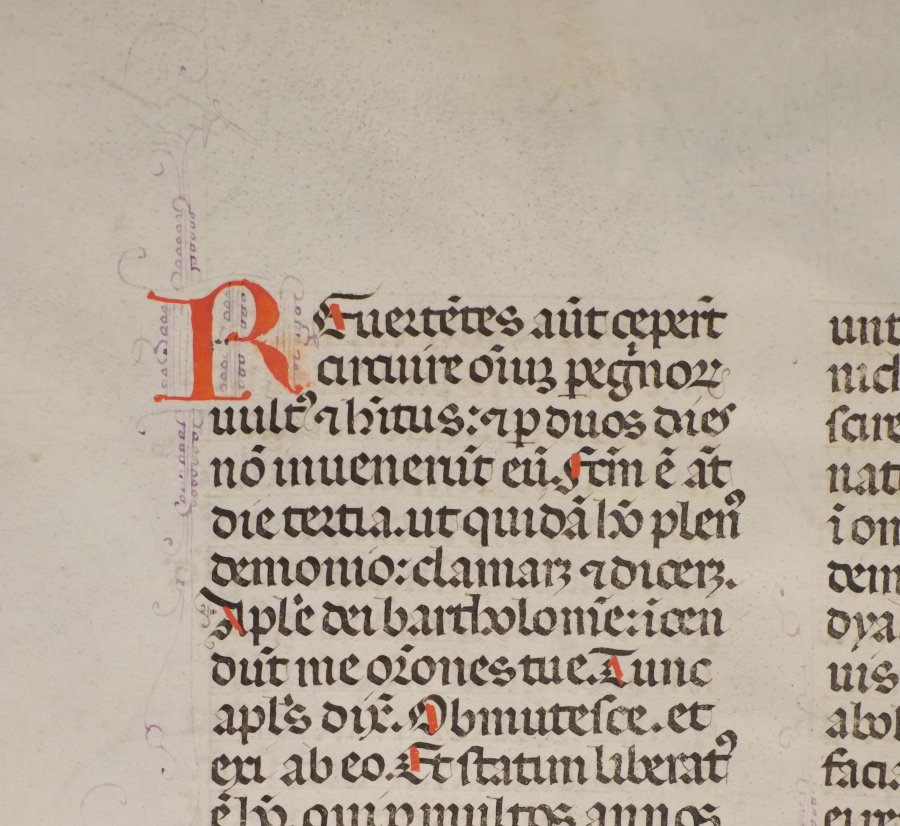 REuertētes aūt cęperūt
circuire oīuꝫ peg̾noꝝ
uultꝰ ⁊ hītus: ⁊ ꝑ duos dies
nō inuenerūt eū. Fctm̄ ē aūt
die tertia. ut quidā hō plenꝰ
demonio: clamarꝫ ⁊ dicerꝫ.
Aplē dei bartholomēe: icen
dūt me orōnes tue. Tunc
aplūs dix̄. Obmutesce. et
exi ab eo. Et statim liberatꝰ
ē hō. qui ꝑ multos annos
unt
nich
scire
nat
ī om
dem
dya
uis
abol
facia